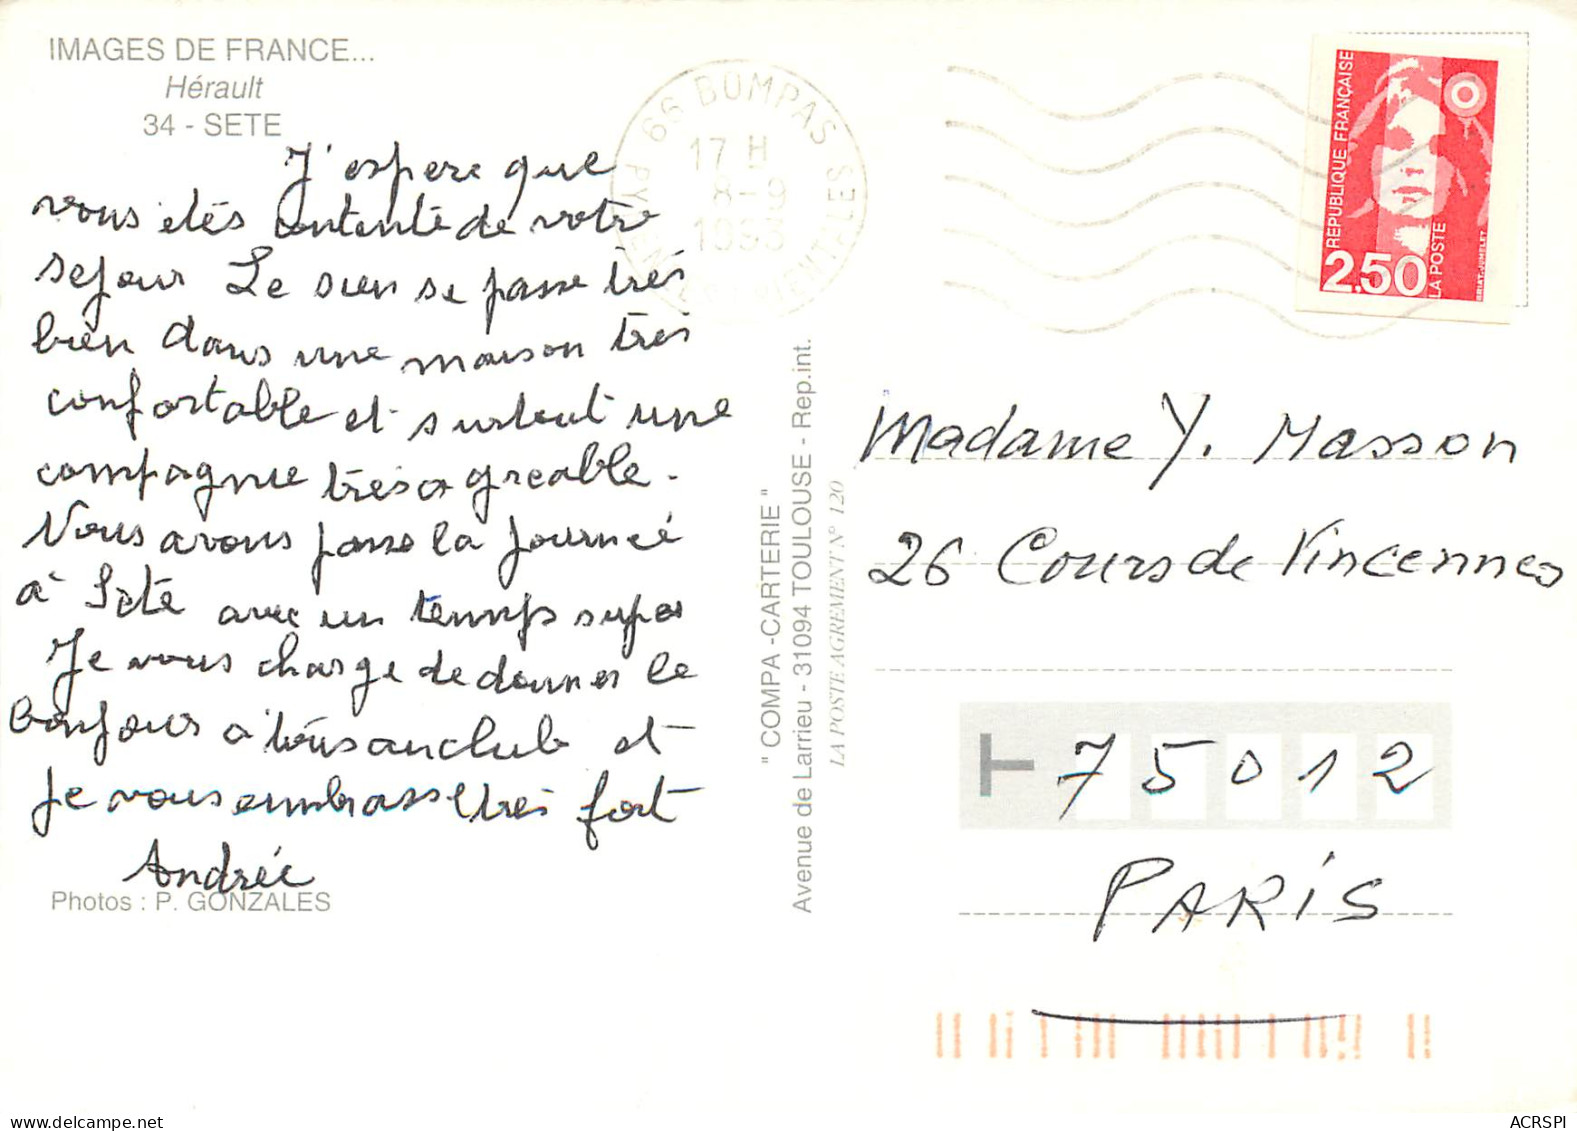 IMAGES DE FRANCE...
Hérault
34 - SETE
J'espere que
vous etés contente de votre
sejour Le sien se passe très
bien dans une maison tres
confortable et surtout une
compagnie très agreable.
Nous avons passé la journeé
à Sète avec un temps super
Je vous charge de donner le
bonjour à tous au club et
je vous embrasse très fort
Andrée
Photos : P. GONZALES
" COMPA -CARTERIE "
Avenue de Larrieu - 31094 TOULOUSE - Rep.int.
LA POSTE AGREMENT N° 120
66 BOMPAS
17 H
8-9
1993
REPUBLIQUE FRANÇAISE
2,50
LA POSTE
BRIAT-JUMELET
Madame Y. Masson
26 Cours de Vincennes
75012
PARiS
ACRSPI